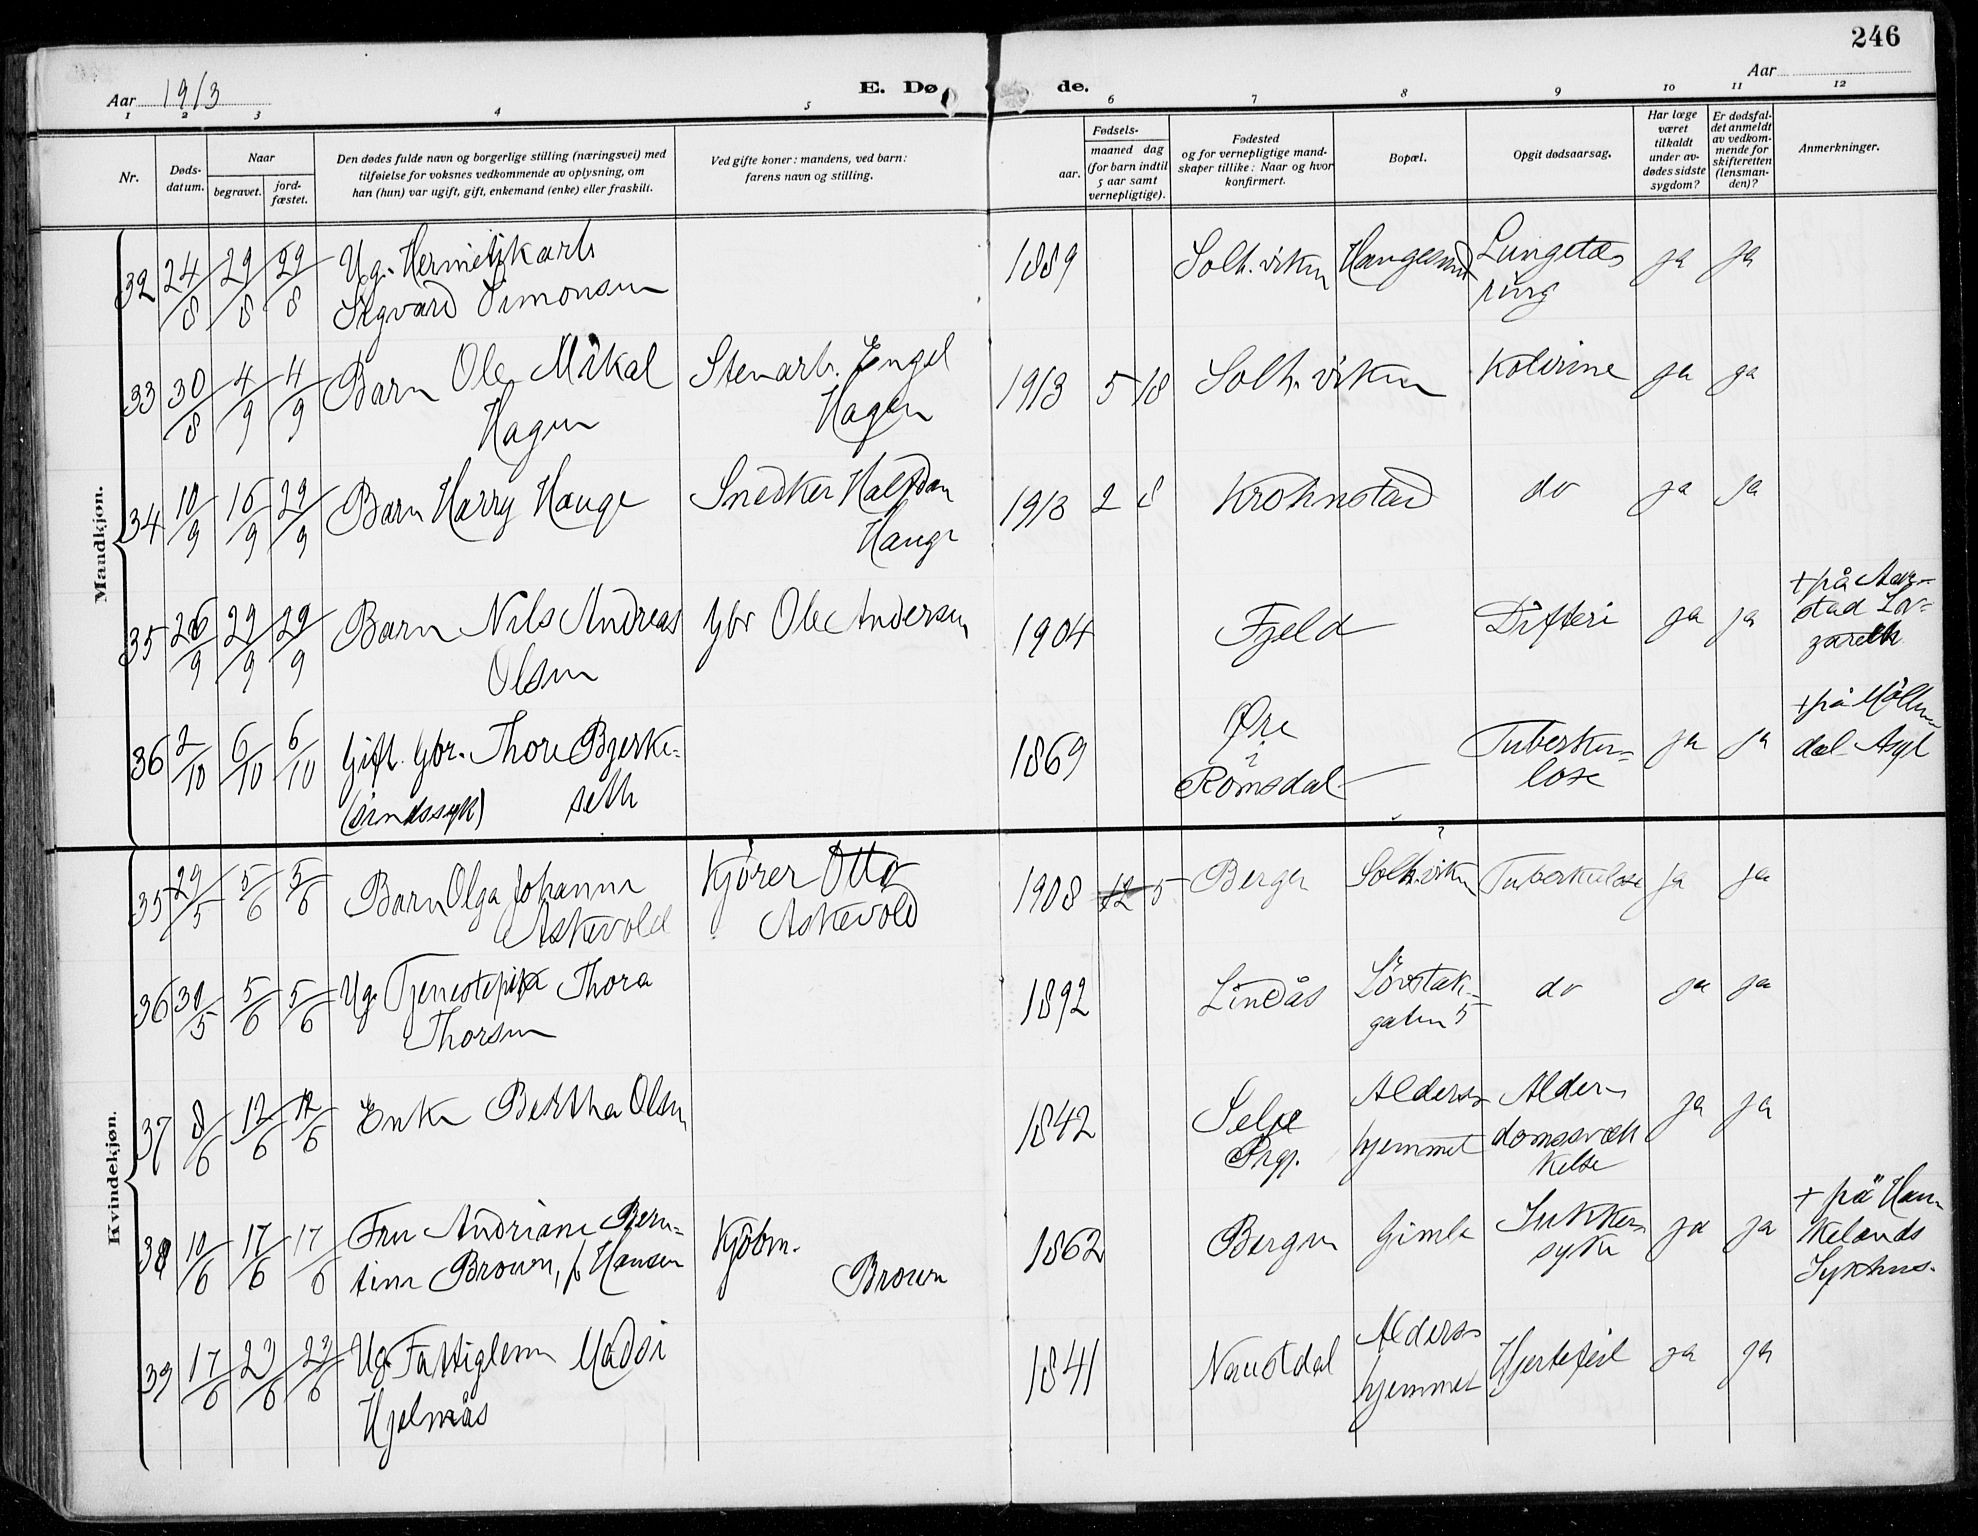 246
Aar 1913
E. Dø de.
Aar
1 2 3 4 5 6 7 8 9 10 11 12
Nr.
Døds-
datum.
Naar
begravet.
jord-
fæstet.
Den dødes fulde navn og borgerlige stilling (næringsvei) med
tilføielse for voksnes vedkommende av oplysning, om
han (hun) var ugift, gift, enkemand (enke) eller fraskilt.
Ved gifte koner: mandens, ved barn:
farens navn og stilling.
Fødsels-
aar.
maaned dag
(for barn indtil
5 aar samt
vernepligtige).
Fødested
og for vernepligtige mand-
skaper tillike: Naar og hvor
konfirmert.
Bopæl.
Opgit dødsaarsag.
Har læge
været
tilkaldt
under av-
dødes sidste
sygdom?
Er dødsfal-
det anmeldt
av vedkom-
mende for
skifteretten
(lensman-
den)?
Anmerkninger.
Mandkjøn.
32 24/8 29/8 29/8 Ug. Hermetikarb.
Sigvard Simonsen
1889 Solh.viken Haugesund Lungetæ
ring ja ja
33 30/8 4/9 4/9 Barn Ole Mikal
Hagen
Stenarb. Engel
Hagen
1913 5 18 Solh.viken Kolerine ja ja
34 10/9 16/9 29/9 Barn Harry Hauge
Snedker Halfdan
Hauge
1913 2 8 Krohnstad do ja ja
35 26/9 29/9 29/9 Barn Nils Andreas
Olsen
Gbr Ole Andersen
1904 Fjeld Difteri ja ja
+ på Aar-
stad La-
zareth
36 2/10 6/10 6/10 Gift. Gbr. Thore Bjerke-
seth
(sindssyk)
1869 Øre
i
Romsdal
Tuberku-
lose ja ja
+ på Möllen
dal Asyl
Kvindekjøn.
35 29/5 5/6 5/6 Barn Olga Johanne
Askevold
Kjörer Otto
Askevold
1908 12 5 Bergen Solh.viken Tuberkulose ja ja
36 30/5 5/6 5/6 Ug. Tjenestepike Thora
Thorsen
1892 Lindås Lövstak-
gaten 5 do ja ja
37 8/6 12/6 12/6 Enke Bertha Olsen
1842 Selje
Prgj.
Alders
hjemmet
Alder-
domssvæk
kelse ja ja
38 10/6 17/6 17/6 Fru Andriane Bern-
tine Brown, f. Hansen
Kjöbm.
Brown
1862 Bergen Gimle Sukker
syke ja ja
+ på Hau
kelands
Sykehus.
39 17/6 23/6 23/6 Ug. Fattiglem Madsi
Hjelmås
1841 Naustdal Alders
hjemmet Hjertefeil ja ja